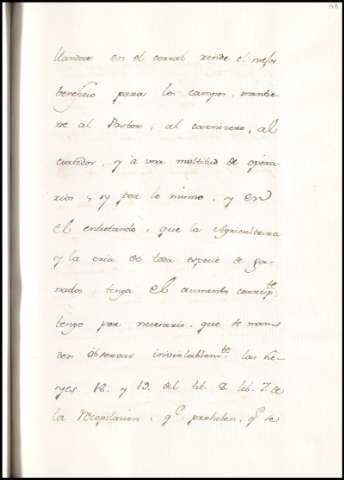 llandose en el corral rinde el mejor
beneficio para los campos, mantie
ne al Pastor, al carnicero, al
curtidor, y à una multitud de opera
rios, y por lo mismo, y en
el entretando, que la Agricultura
y la cria de toda especie de ga-
nados tenga el aumento correspte.
tengo por necesario, que se man
den observar inviolablemte. las Le-
yes 18. y 19. del tit. 7 lib. 7. de
la Recopilacion, q.e prohiben, q.e se